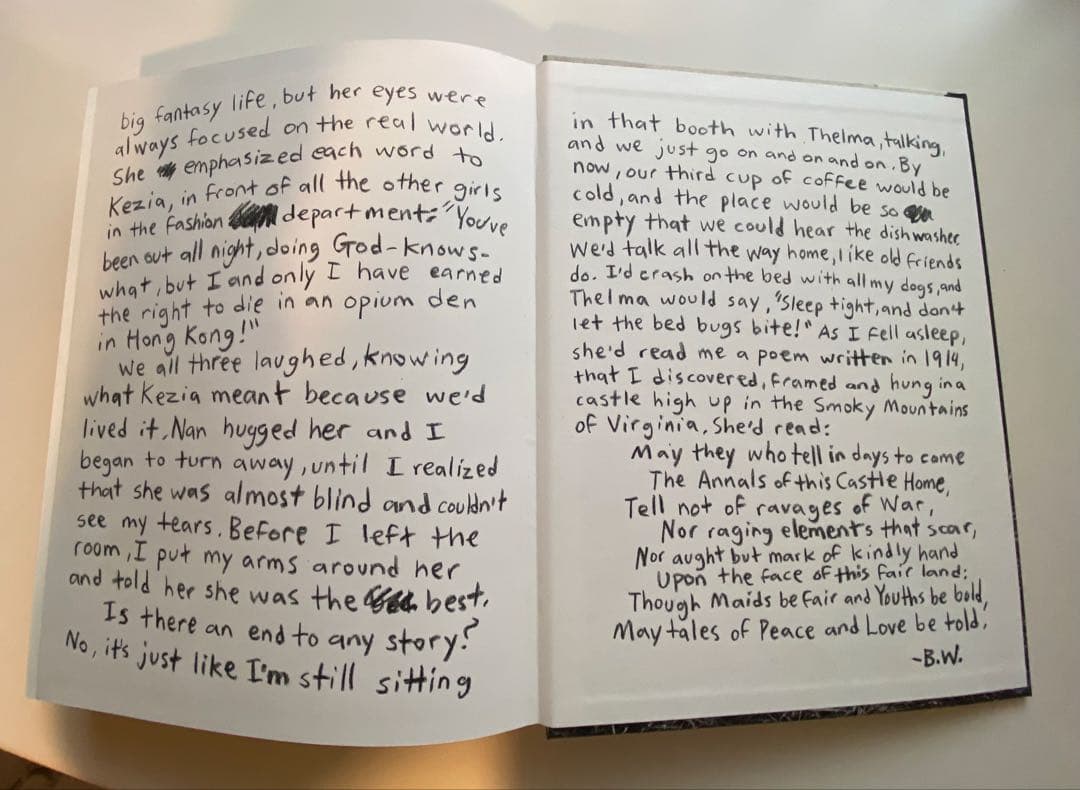 big fantasy life, but her eyes were
always focused on the real world.
She emphasized each word to
Kezia, in front of all the other girls
in the fashion department: "You've
been out all night, doing God-knows-
what, but I and only I have earned
the right to die in an opium den
in Hong Kong!"
We all three laughed, knowing
what Kezia meant because we'd
lived it. Nan hugged her and I
began to turn away, until I realized
that she was almost blind and couldn't
see my tears. Before I left the
room, I put my arms around her
and told her she was the best.
Is there an end to any story?
No, it's just like I'm still sitting
in that booth with Thelma, talking,
and we just go on and on and on. By
now, our third cup of coffee would be
cold, and the place would be so
empty that we could hear the dishwasher.
We'd talk all the way home, like old friends
do. I'd crash on the bed with all my dogs, and
Thelma would say, "Sleep tight, and don't
let the bed bugs bite!" As I fell asleep,
she'd read me a poem written in 1914,
that I discovered, framed and hung in a
castle high up in the Smoky Mountains
of Virginia. She'd read:
May they who tell in days to come
The Annals of this Castle Home,
Tell not of ravages of War,
Nor raging elements that scar,
Nor aught but mark of kindly hand
Upon the face of this fair land:
Though Maids be fair and Youths be bold,
May tales of Peace and Love be told.
~B.W.